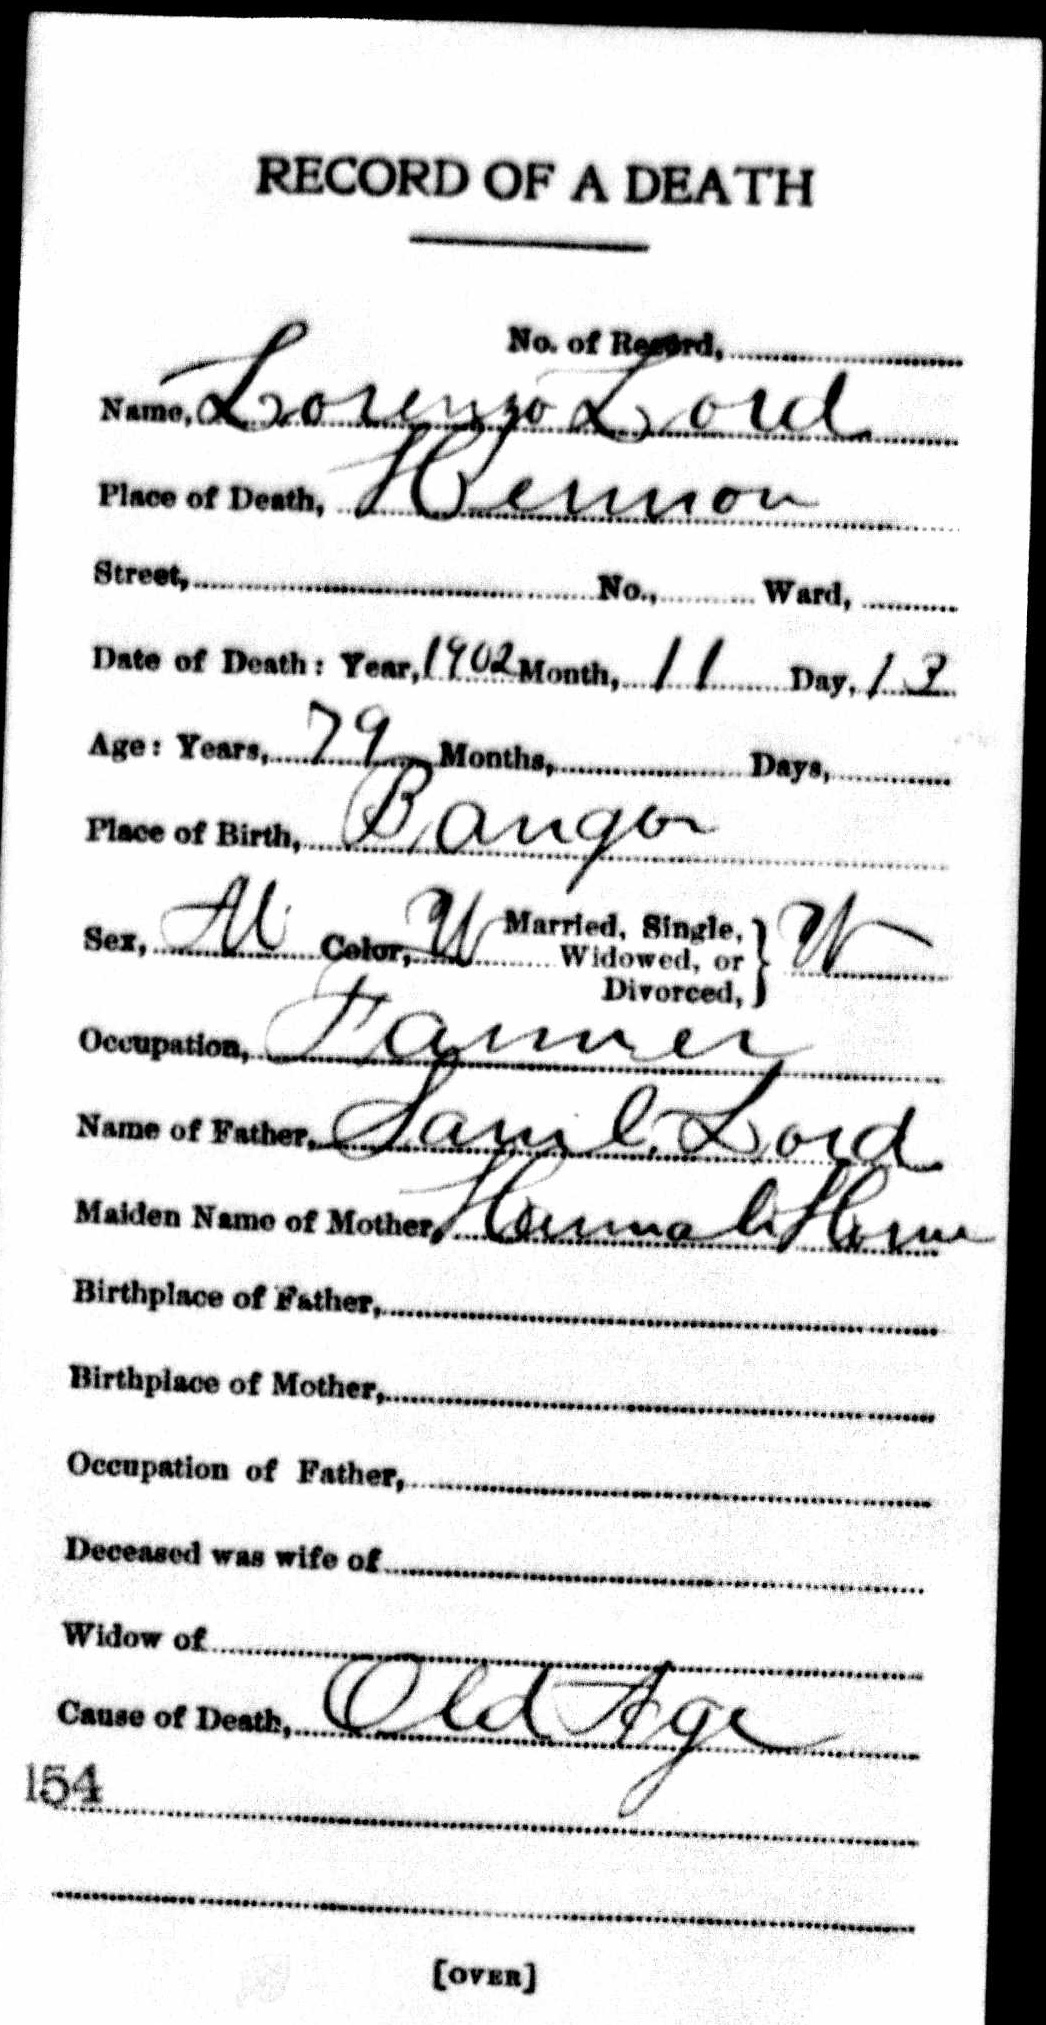 RECORD OF A DEATH
No. of Record,
Name, Lorenzo Lord
Place of Death, Hermon
Street, No., Ward,
Date of Death: Year, 1902 Month, 11 Day, 13
Age: Years, 79 Months, Days,
Place of Birth, Bangor
Sex, M Color, W Married, Single, Widowed, or Divorced, } W
Occupation, Farmer
Name of Father, Saml. Lord
Maiden Name of Mother, Hannah
Birthplace of Father,
Birthplace of Mother,
Occupation of Father,
Deceased was wife of
Widow of
Cause of Death, Old Age
154
[OVER]